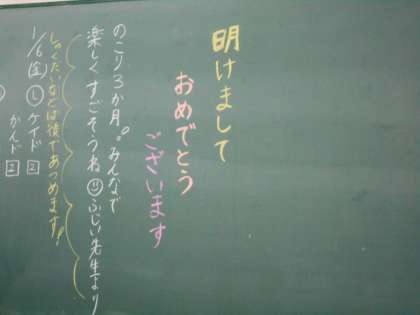 明けまして
おめでとう
ございます
のこり3か月。みんなで
楽しくすごそうね ふじい先生より
しゅくだいなどは後であつめます!
1/6(金) し ケイド 2
かんド 2